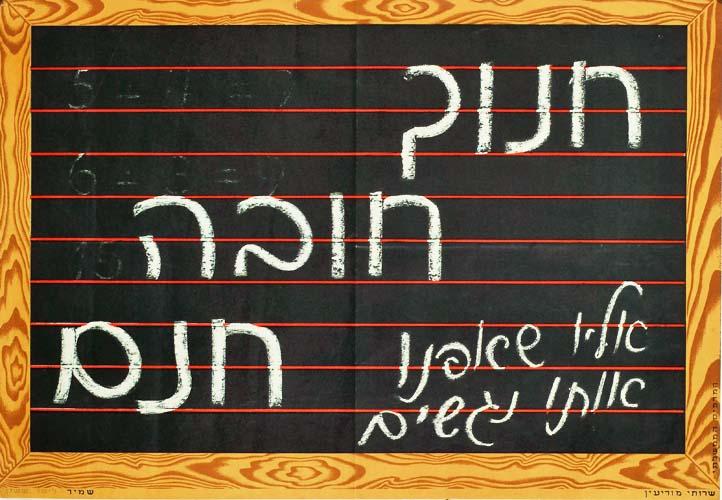 חנוך
חובה
חנם
אליו שאפנו
אותו נגשים
שרותי מודיעין
שמיר